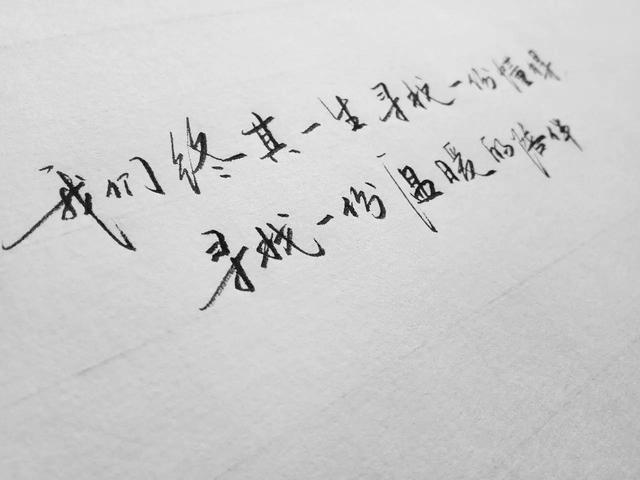 我们终其一生寻找一份懂得
寻找一份温暖的陪伴